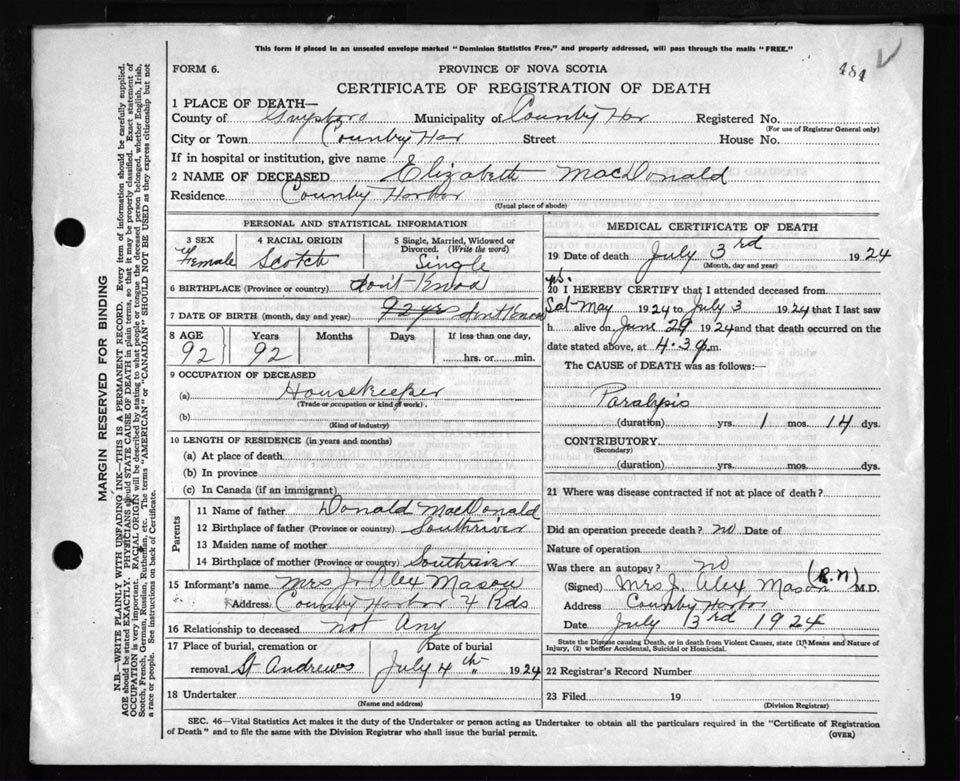 This form if placed in an unsealed envelope marked "Dominion Statistics Free," and properly addressed, will pass through the mails "FREE."
484
FORM 6.
PROVINCE OF NOVA SCOTIA
CERTIFICATE OF REGISTRATION OF DEATH
1 PLACE OF DEATH—
County of Guysboro Municipality of Country Har Registered No.
(For use of Registrar General only)
City or Town Country Har Street House No.
If in hospital or institution, give name
2 NAME OF DECEASED Elizabeth MacDonald
Residence Country Harbor
(Usual place of abode)
PERSONAL AND STATISTICAL INFORMATION
3 SEX 4 RACIAL ORIGIN 5 Single, Married, Widowed or Divorced. (Write the word)
Female Scotch Single
6 BIRTHPLACE (Province or country) don't Know
7 DATE OF BIRTH (month, day and year) 92 yrs dont Know
8 AGE Years Months Days If less than one day,
92 92 hrs. or min.
9 OCCUPATION OF DECEASED
(a) Housekeeper
(Trade or occupation or kind of work).
(b)
(Kind of industry)
10 LENGTH OF RESIDENCE (in years and months)
(a) At place of death
(b) In province
(c) In Canada (if an immigrant)
Parents
11 Name of father Donald MacDonald
12 Birthplace of father (Province or country) Southriver
13 Maiden name of mother
14 Birthplace of mother (Province or country) Southriver
15 Informant's name Mrs J. Alex Mason
Address Country Harbor X Rds
16 Relationship to deceased not Any
17 Place of burial, cremation or removal Date of burial
St Andrews July 4th 1924
18 Undertaker
(Name and address)
MEDICAL CERTIFICATE OF DEATH
19 Date of death July 3rd 1924
(Month, day and year)
20 I HEREBY CERTIFY that I attended deceased from
Sat-May 1924 to July 3 1924 that I last saw
h alive on June 29 1924 and that death occurred on the
date stated above, at 4.30 p.m.
The CAUSE of DEATH was as follows:—
Paralysis
(duration) yrs. 1 mos. 14 dys.
CONTRIBUTORY
(Secondary)
(duration) yrs. mos. dys.
21 Where was disease contracted if not at place of death?
Did an operation precede death? no Date of
Nature of operation
Was there an autopsy? no
(Signed) Mrs J. Alex Mason (R.N) M.D.
Address Country Harbor
Date July 13rd 1924
State the Disease causing Death, or in death from Violent Causes, state (1) Means and Nature of Injury, (2) whether Accidental, Suicidal or Homicidal.
22 Registrar's Record Number
23 Filed 19
(Division Registrar)
SEC. 46—Vital Statistics Act makes it the duty of the Undertaker or person acting as Undertaker to obtain all the particulars required in the "Certificate of Registration
of Death" and to file the same with the Division Registrar who shall issue the burial permit.
(OVER)
MARGIN RESERVED FOR BINDING
N.B.—WRITE PLAINLY WITH UNFADING INK—THIS IS A PERMANENT RECORD. Every item of information should be carefully supplied.
AGE should be stated EXACTLY. PHYSICIANS should STATE CAUSE OF DEATH in plain terms, so that it may be properly classified. Exact statement of
OCCUPATION is very important. RACIAL ORIGIN will be described by stating to what people or tongue the deceased person belonged, whether English, Irish,
Scotch, French, German, Russian, Ruthenian, etc. The terms "AMERICAN" or "CANADIAN" SHOULD NOT BE USED as they express citizenship but not
a race or people. See instructions on back of Certificate.